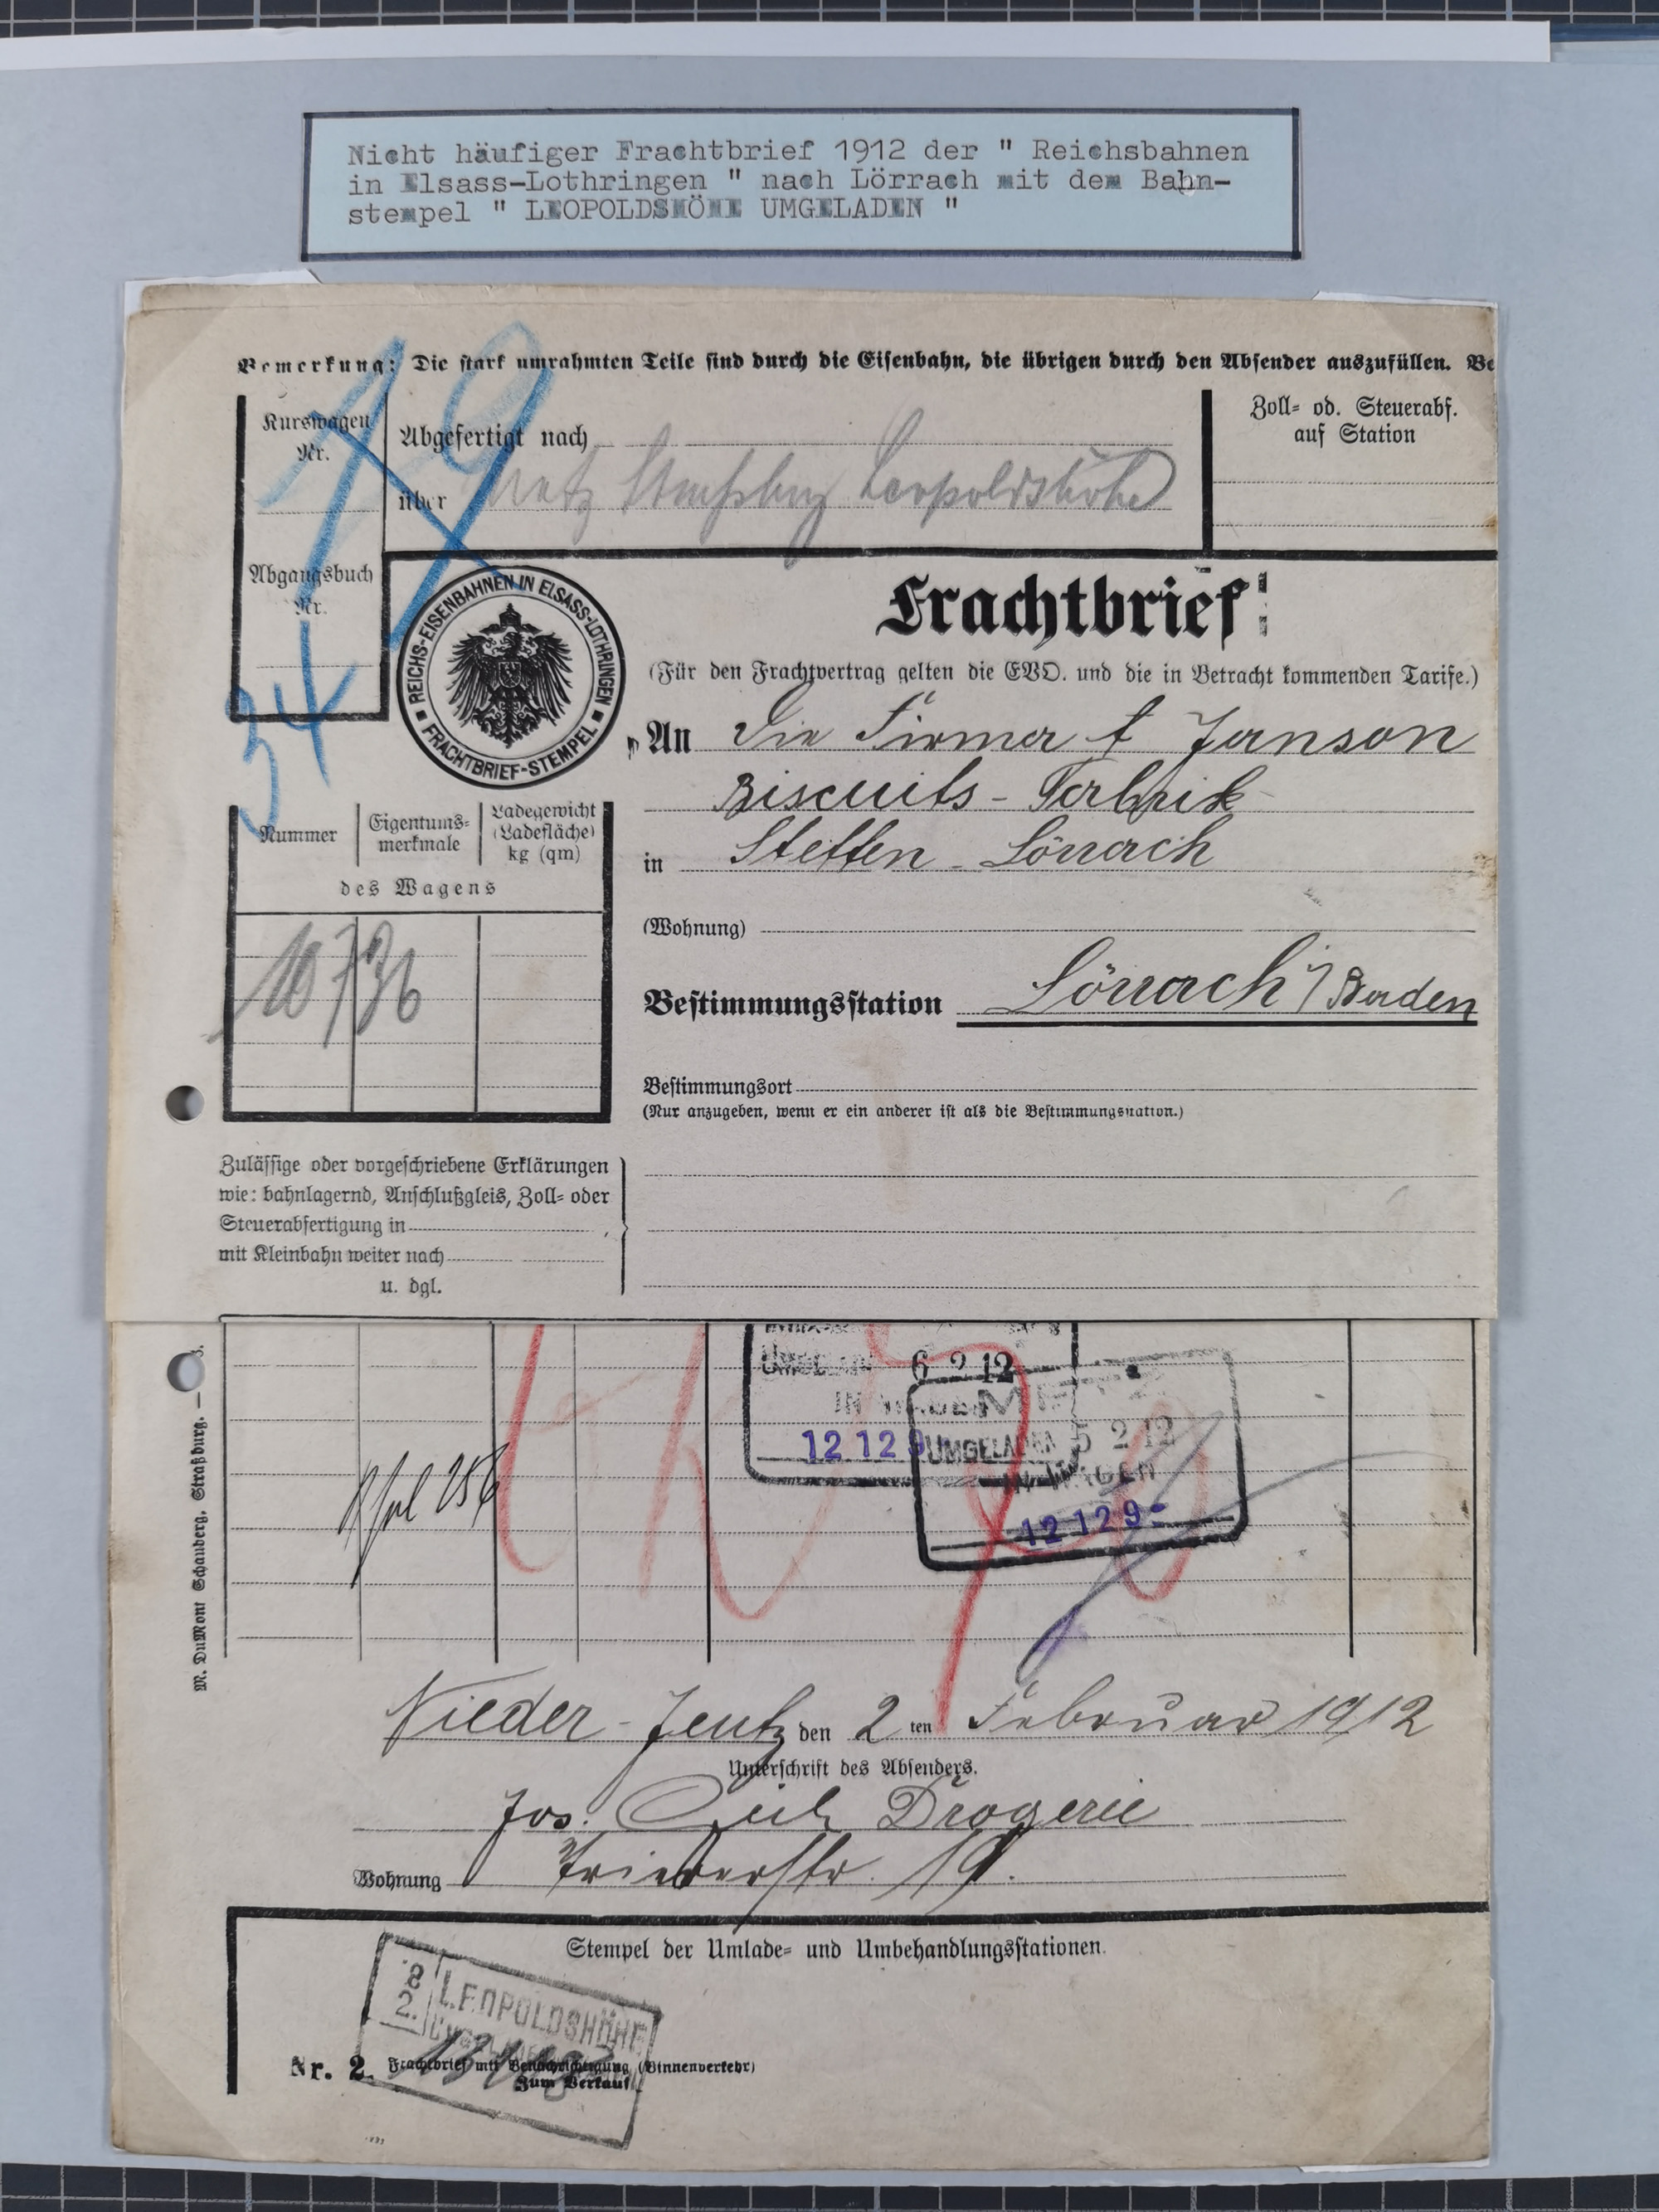 Nicht häufiger Frachtbrief 1912 der " Reichsbahnen
in Elsass-Lothringen " nach Lörrach mit dem Bahn-
stempel " LEOPOLDSHÖHE UMGELADEN "
Bemerkung: Die stark umrahmten Teile sind durch die Eisenbahn, die übrigen durch den Absender auszufüllen. Be
19
Kurswagen
Nr.
Abgefertigt nach
über Metz Straßburg Leopoldshöhe
Zoll- od. Steuerabf.
auf Station
Abgangsbuch
Nr.
34
REICHS-EISENBAHNEN IN ELSASS-LOTHRINGEN
FRACHTBRIEF-STEMPEL
Frachtbrief
(Für den Frachtvertrag gelten die EVO. und die in Betracht kommenden Tarife.)
An die Firma f Janson
Biscuits - Fabrik
in Stetten - Lörrach
(Wohnung)
Bestimmungsstation Lörrach i/Baden
Bestimmungsort
(Nur anzugeben, wenn er ein anderer ist als die Bestimmungsstation.)
Nummer
Eigentums-
merkmale
Ladegewicht
(Ladefläche)
kg (qm)
des Wagens
10736
Zulässige oder vorgeschriebene Erklärungen
wie: bahnlagernd, Anschlußgleis, Zoll- oder
Steuerabfertigung in
mit Kleinbahn weiter nach
u. dgl.
M. DuMont Schauberg, Straßburg.
6 2 12
IN WAGEN
12 12 9
METZ
UMGELADEN 5 2 12
IN WAGEN
12 12 9-
256
Nieder-Jeutz den 2 ten Februar 1912
Unterschrift des Absenders.
Jos. Drogerie
Wohnung Triererstr. 19.
Stempel der Umlade- und Umbehandlungsstationen.
8
2.
LEOPOLDSHÖHE
Nr. 2. Frachtbrief mit Benachrichtigung (Binnenverkehr)
Zum Verkauf